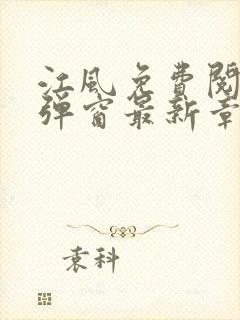 江风免费阅
弹窗最新章
袁科